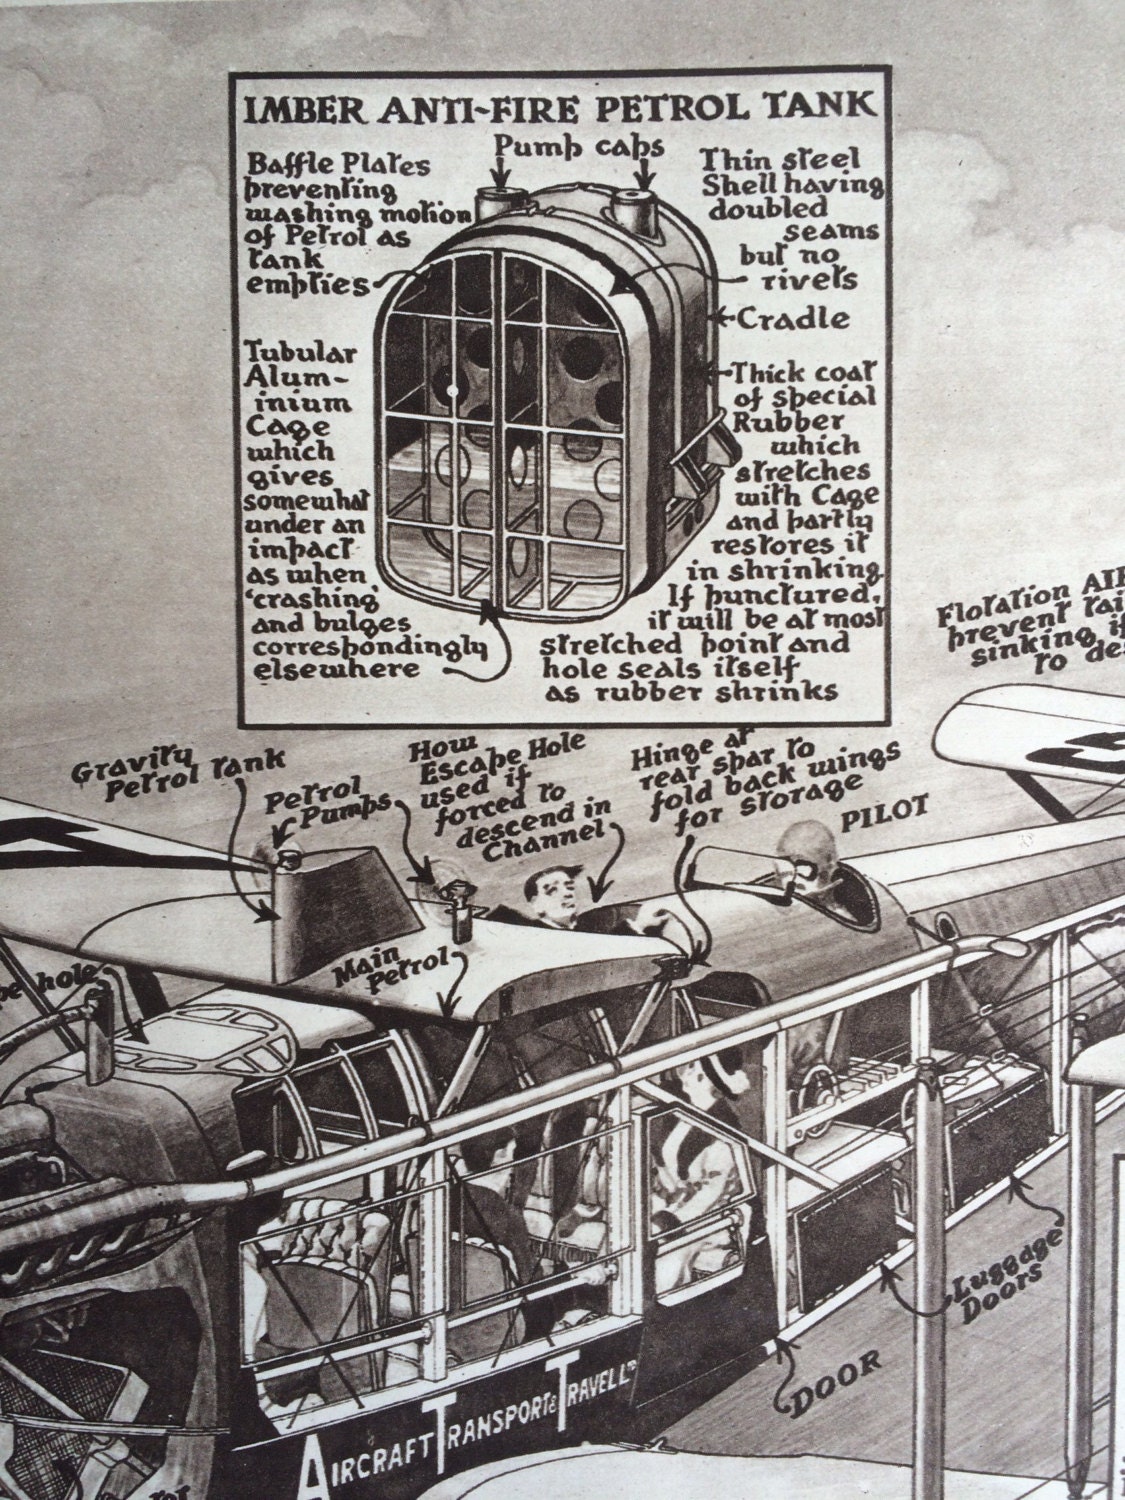 IMBER ANTI-FIRE PETROL TANK
Pump caps
Baffle Plates
preventing
washing motion
of Petrol as
tank
empties
Thin steel
Shell having
doubled
seams
but no
rivets
Cradle
Tubular
Alum-
inium
Cage
which
gives
somewhat
under an
impact
as when
'crashing'
and bulges
correspondingly
elsewhere
Thick coat
of special
Rubber
which
stretches
with Cage
and partly
restores it
in shrinking
If punctured,
it will be at most
stretched point and
hole seals itself
as rubber shrinks
Flotation
prevent
sinking, if
to
Gravity
Petrol tank
Petrol
Pumps
How
Escape Hole
used if
forced to
descend in
Channel
Hinge at
rear spar to
fold back wings
for storage
PILOT
hole
Main
Petrol
Luggage
Doors
DOOR
AIRCRAFT TRANSPORT & TRAVEL LTD